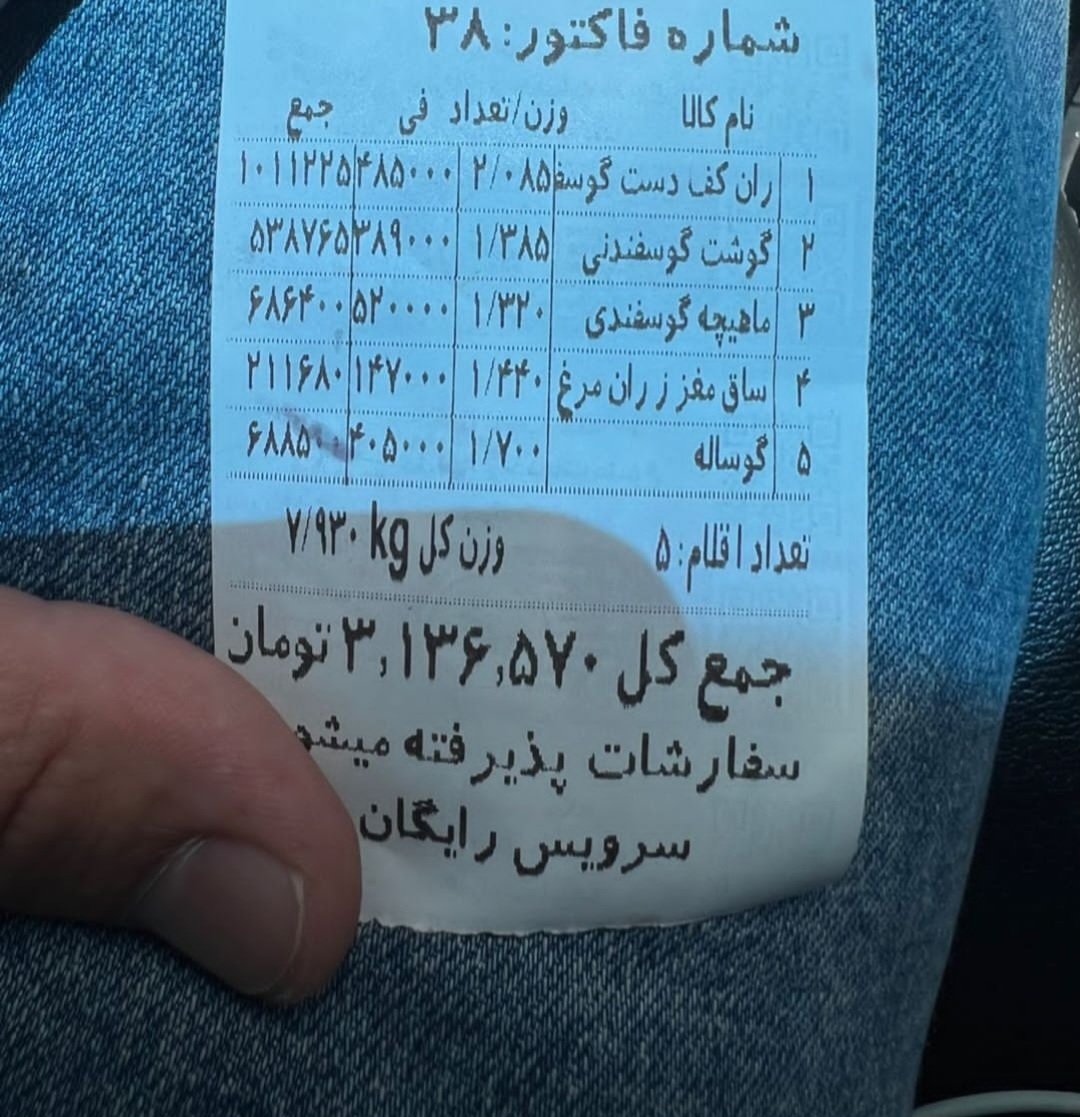 شماره فاکتور: ۳۸
نام کالا وزن/تعداد فی جمع
۱ ران کف دست گوسف ۲/۰۸۵ ۴۸۵۰۰۰ ۱۰۱۱۲۲۵
۲ گوشت گوسفندنی ۱/۳۸۵ ۳۸۹۰۰۰ ۵۳۸۷۶۵
۳ ماهیچه گوسفندی ۱/۳۲۰ ۵۲۰۰۰۰ ۶۸۶۴۰۰
۴ ساق مغز ز ران مرغ ۱/۴۴۰ ۱۴۷۰۰۰ ۲۱۱۶۸۰
۵ گوساله ۱/۷۰۰ ۴۰۵۰۰۰ ۶۸۸۵۰۰
تعداد اقلام: ۵ وزن کل ۷/۹۳۰ kg
جمع کل ۳,۱۳۶,۵۷۰ تومان
سفارشات پذیرفته میشود
سرویس رایگان